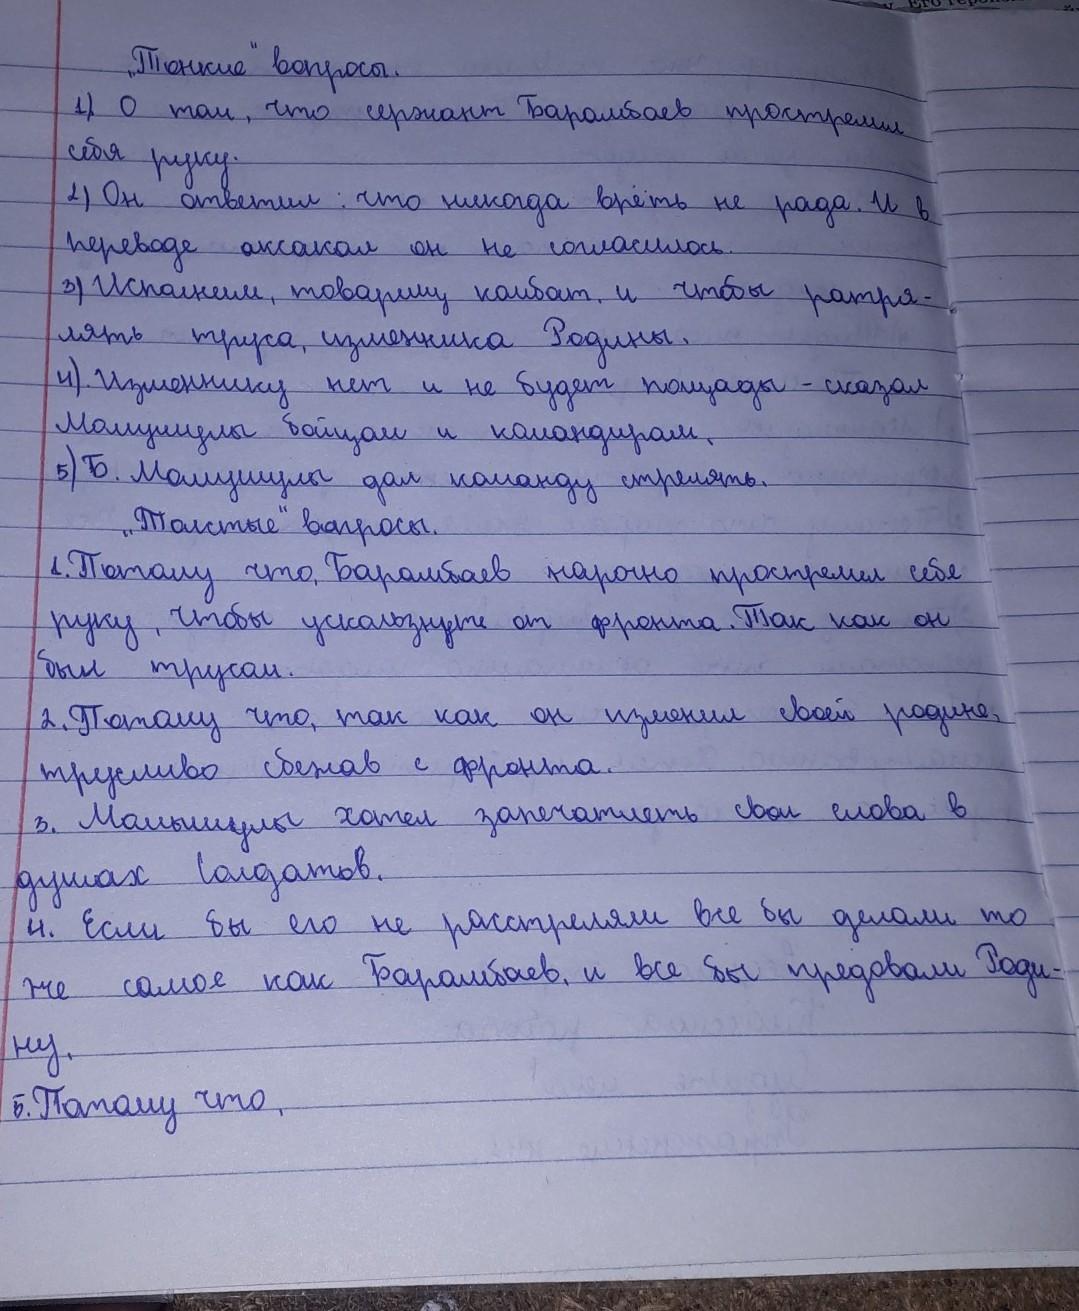 „Тонкие" вопросы.
1) О том, что сержант Барамбаев прострелил
себя руку.
2) Он ответил: что никогда врёть не рада. И в
переводе аксакал он не согласилось.
3) Исполнем, товарищу комбат, и чтбы ратря-
лять труса, изменника Родины.
4). Изменнику нет и не будет пощады - сказал
Момушулы бойцам и командирам.
5) Б. Момушулы дал команду стрелять.
„Толстые" вопросы.
1. Потому что, Барамбаев нарочно прострелил себе
руку, чтобы ускользнуте от фронта. Так как он
был трусом.
2. Потому что, так как он изменил своей родине,
трусливо сбежав с фронта.
3. Момышулы хотел запечатлеть свои слова в
душах солдатов.
4. Если бы его не расстреляли все бы делали то
же самое как Барамбаев, и все бы предовали Роди-
ну.
5. Потому что,